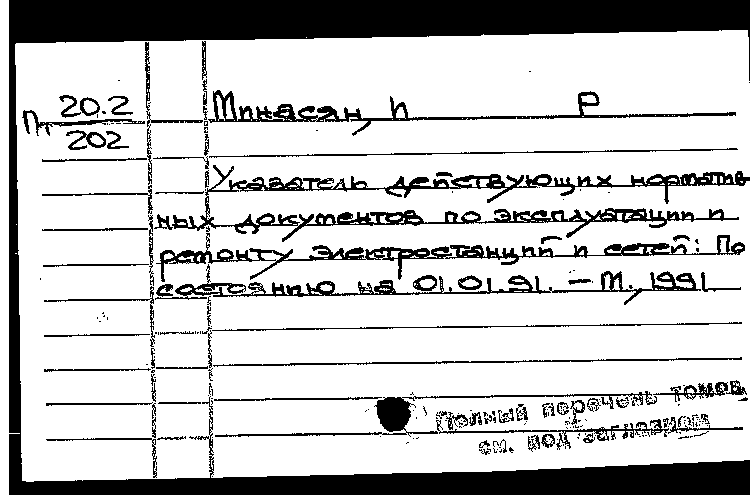 Пт 20.2
202
Минасян, И Р
Указатель действующих норматив
ных документов по эксплуатации и
ремонту электростанций и сетей: По
состоянию на 01.01.91. – М., 1991
Полный перечень томов
см. под заглавием